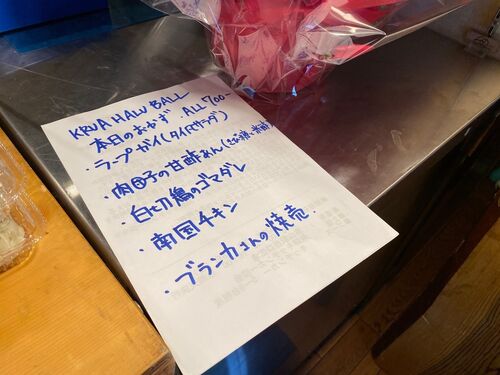 KRUA HALU BALL
本日のおかず ALL 700-
・ラープガイ(タイ肉サラダ)
・肉団子の甘酢あん
・白切鶏のゴマダレ
・南国チキン
・ブランカさんの焼売